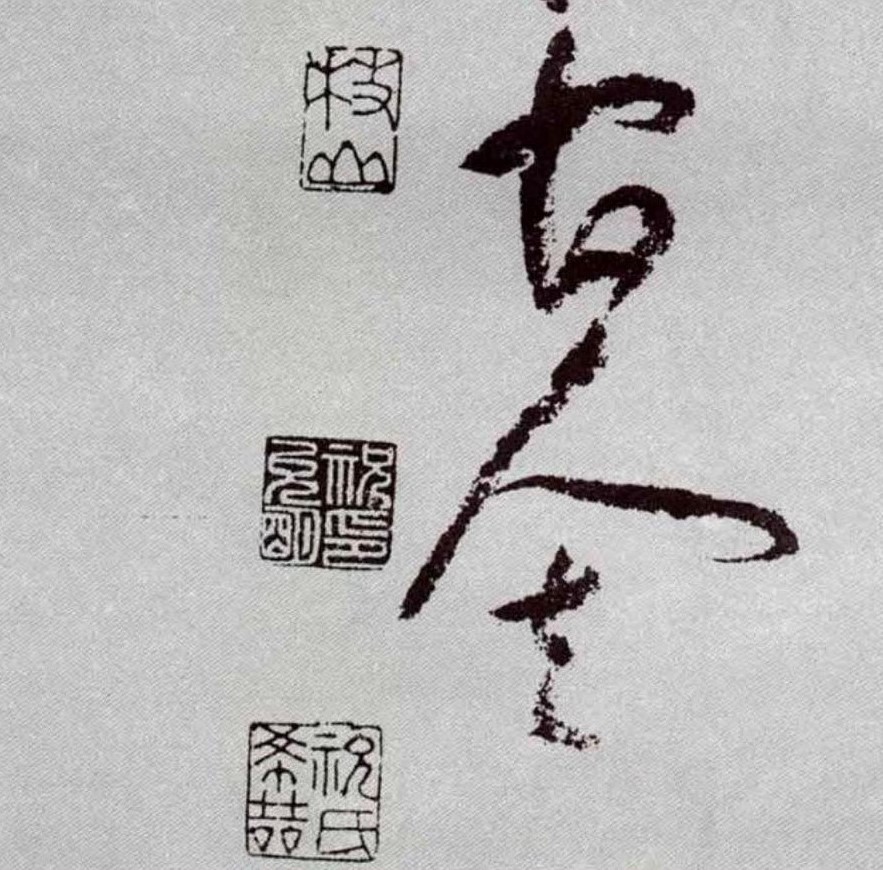 古人
枝山
祝允明印
祝氏希哲